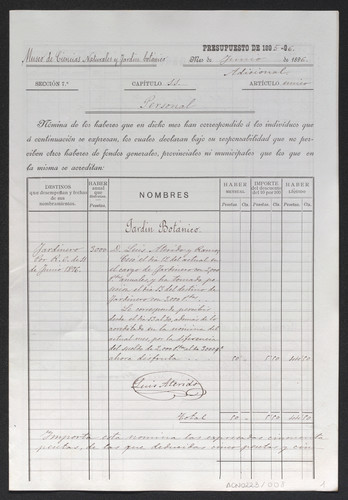 Museo de Ciencias Naturales y Jardín botánico
PRESUPUESTO DE 1895-96.
Mes de Junio de 1896
Adicional
SECCIÓN 7.ª CAPÍTULO 11. ARTÍCULO único
Personal
Nómina de los haberes que en dicho mes han correspondido á los individuos que
á continuación se expresan, los cuales declaran bajo su responsabilidad que no per-
ciben otros haberes de fondos generales, provinciales ni municipales que los que en
la misma se acreditan:
DESTINOS
que desempeñan y fechas
de sus
nombramientos.
HABER
anual
que disfrutan
Pesetas.
NOMBRES
HABER
MENSUAL
Pesetas Cts.
IMPORTE
del descuento
del 10 por 100
Pesetas Cts.
HABER
LÍQUIDO
Pesetas Cts.
Jardín Botánico.
Jardinero
Por R.O. de 11
de Junio 1896.
3000
D. Luis Aterido y
Cesa el día 12 del actual en
el cargo de Jardinero con 2,000
ptas anuales, y ha tomado po-
sesión el día 13 del destino de
Jardinero con 3,000 ptas.
Le corresponde percibir
desde el día 13 al 30, además de lo
acreditado en la nómina del
actual mes, por la diferencia
del sueldo de 2,000 ptas al de 3000 qe
ahora disfruta 50 - 5 50 44 50
Luis Aterido
Total 50 - 5 50 44 50
Importa esta nómina las expresadas cincuenta
pesetas, de las que deducidas cinco pesetas y cin-
ACN0223/003
1